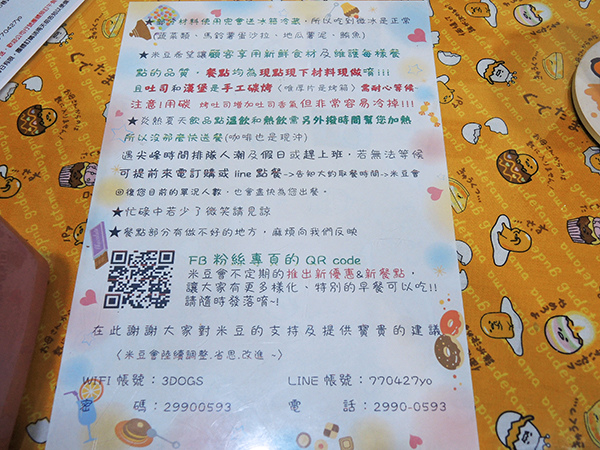 ★部分材料使用完會送冰箱冷藏，所以吃到微冰是正常
(蔬菜類、馬鈴薯蛋沙拉、地瓜薯泥、鮪魚)
★米豆希望讓顧客享用新鮮食材及維護每樣餐
點的品質，餐點均為現點現下材料現做唷!!!
且吐司和漢堡是手工碳烤(唯厚片是烤箱)需耐心等候
注意!用碳烤吐司增加吐司香氣但非常容易冷掉!!!
★炎熱夏天飲品點溫飲和熱飲需另外撥時間幫您加熱
所以沒那麼快送餐(咖啡也是現沖)
遇尖峰時間排隊人潮及假日或趕上班，若無法等候
可提前來電訂購或 line 點餐->告知大約取餐時間->米豆會
回復您目前的單況人數，也會盡快為您出餐。
★忙碌中若少了微笑請見諒
★餐點部分有做不好的地方，麻煩向我們反映
FB 粉絲專頁的 QR code
米豆會不定期的推出新優惠&新餐點，
讓大家有更多樣化、特別的早餐可以吃!!
請隨時發落唷~!
在此謝謝大家對米豆的支持及提供寶貴的建議
〈米豆會陸續調整.省思.改進 ~〉
WIFI 帳號：3DOGS
LINE 帳號：770427yo
密 碼：29900593
電 話：2990-0593